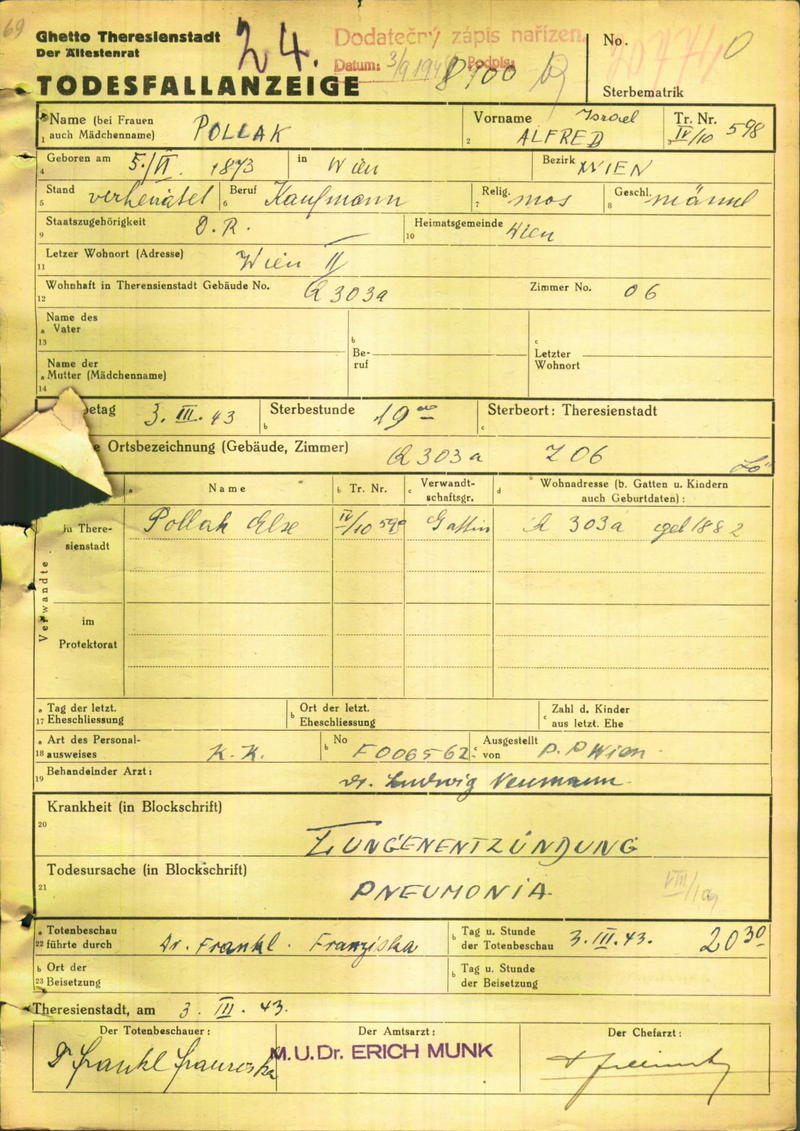 69
Ghetto Theresienstadt
Der Ältestenrat
24.
Dodatečný zápis nařízen.
Datum: Podpis:
8900
No.
TODESFALLANZEIGE
Sterbematrik
Name (bei Frauen auch Mädchenname) POLLAK Vorname Israel ALFRED Tr. Nr. IV/10 598
1 2 3
Geboren am 5./VI. 1873 in Wien Bezirk WIEN
4
Stand verheiratet Beruf Kaufmann Relig. mos Geschl. männl
5 6 7 8
Staatszugehörigkeit D.R. Heimatsgemeinde Wien
9 10
Letzer Wohnort (Adresse) Wien II
11
Wohnhaft in Theresienstadt Gebäude No. Q 303a Zimmer No. 06
12
Name des a Vater
13
b Beruf
c Letzter Wohnort
Name der a Mutter (Mädchenname)
14
betag 3. III. 43 Sterbestunde 19 00 Sterbeort: Theresienstadt
b c
e Ortsbezeichnung (Gebäude, Zimmer) Q 303a Z 06
a Name b Tr. Nr. c Verwandtschaftsgr. d Wohnadresse (b. Gatten u. Kindern auch Geburtdaten):
Verwandte
in Theresienstadt Pollak Else IV/10 Gattin Q 303a geb 1882
im Protektorat
a Tag der letzt. b Ort der letzt. Zahl d. Kinder
17 Eheschliessung Eheschliessung c aus letzt. Ehe
a Art des Personal- b No c Ausgestellt
18 ausweises K.K. F006562 von P.P Wien
Behandeinder Arzt: Dr. Ludwig Neumann
19
Krankheit (in Blockschrift)
20
LUNGENENTZÜNDUNG
Todesursache (in Blockschrift)
21
PNEUMONIA
a Totenbeschau b Tag u. Stunde
22 führte durch Dr. Frankl Franziska der Totenbeschau 3. III. 43. 20 30
b Ort der b Tag u. Stunde
23 Beisetzung der Beisetzung
Theresienstadt, am 3. III. 43.
Der Totenbeschauer: Der Amtsarzt: Der Chefarzt:
Dr Frankl Franziska M.U.Dr. ERICH MUNK